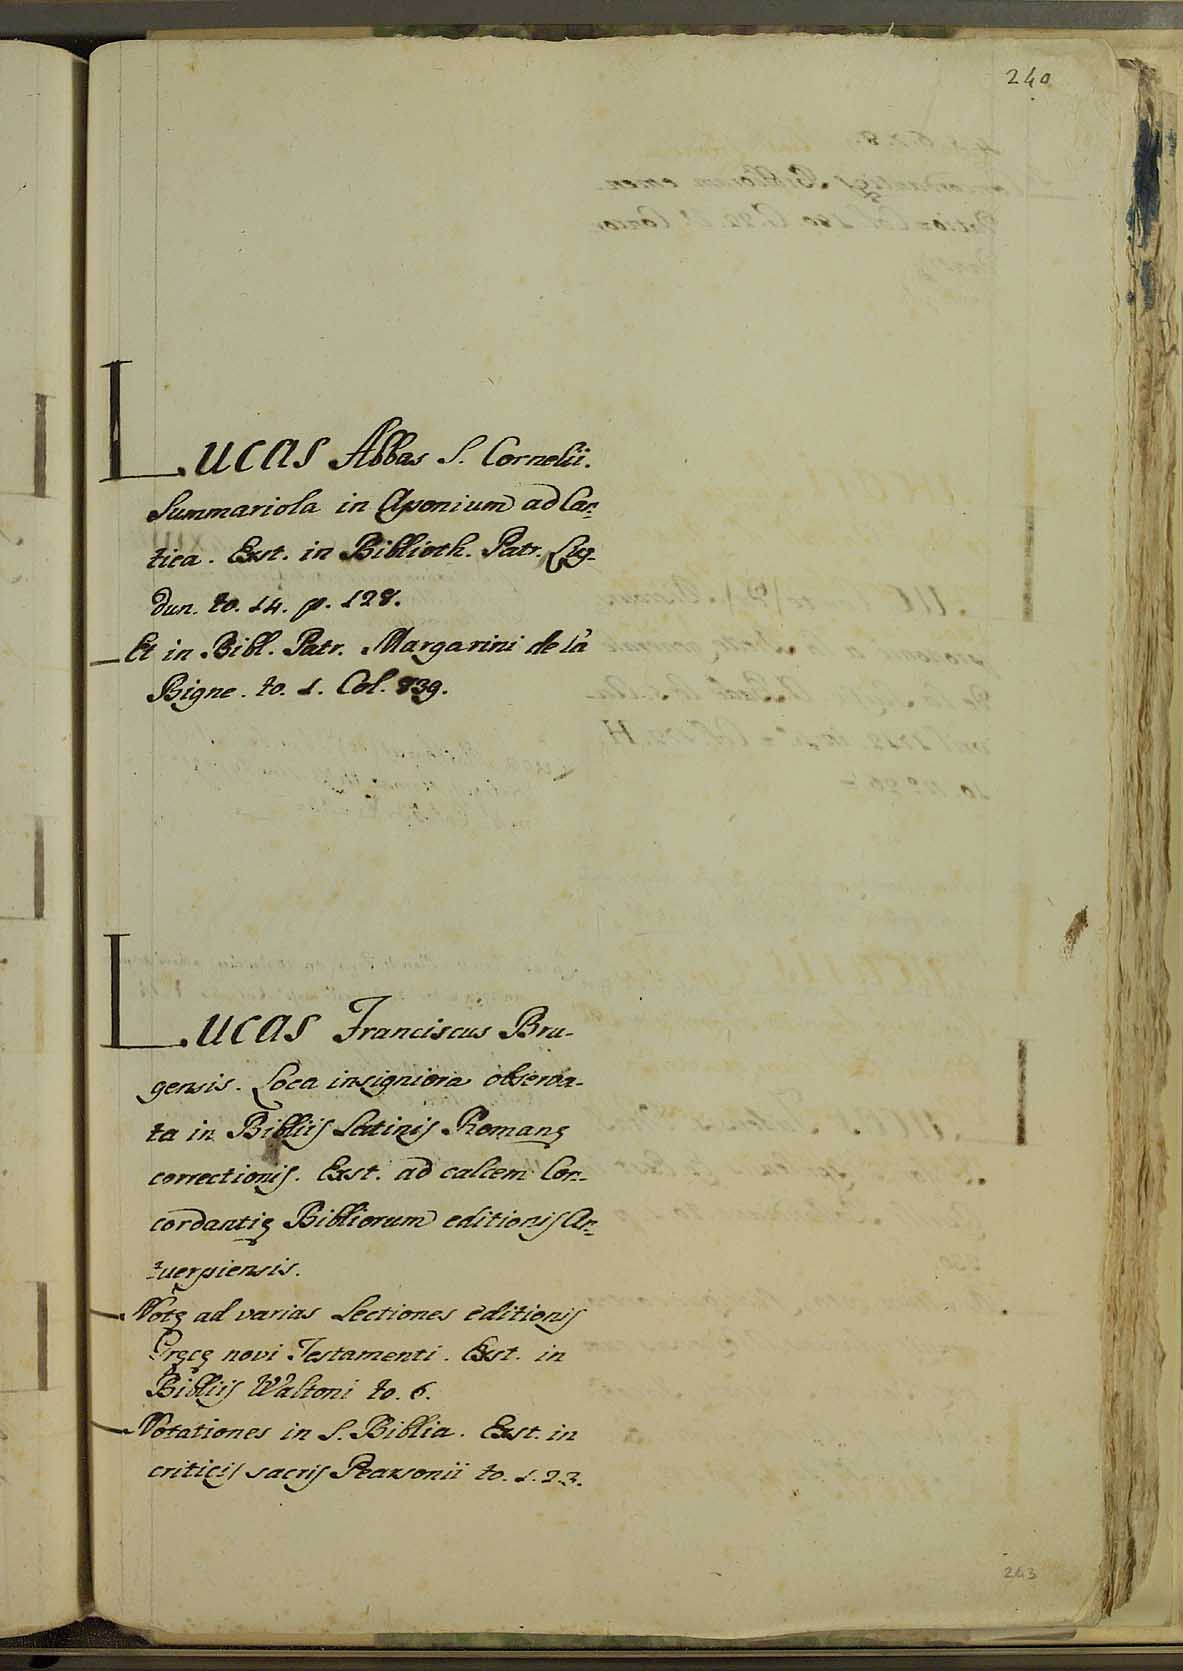 240
Lucas Abbas S. Cornelii.
Summariola in Aponium ad Can-
tica. Exst. in Biblioth. Patr. Lug-
dun. to. 14. p. 128.
Et in Bibl. Patr. Margarini de la
Bigne. to. 1. Col. 839.
Lucas Franciscus Bru-
gensis. Loca insigniora observa-
ta in Bibliis Latinis Romanę
correctionis. Exst. ad calcem Con-
cordantię Bibliorum editionis An-
tuerpiensis.
Notę ad varias Lectiones editionis
Gręcę novi Testamenti. Exst. in
Bibliis Waltoni to. 6.
Notationes in S. Biblia. Exst. in
criticis sacris Pearsonii to. 1. 2. 3.
243